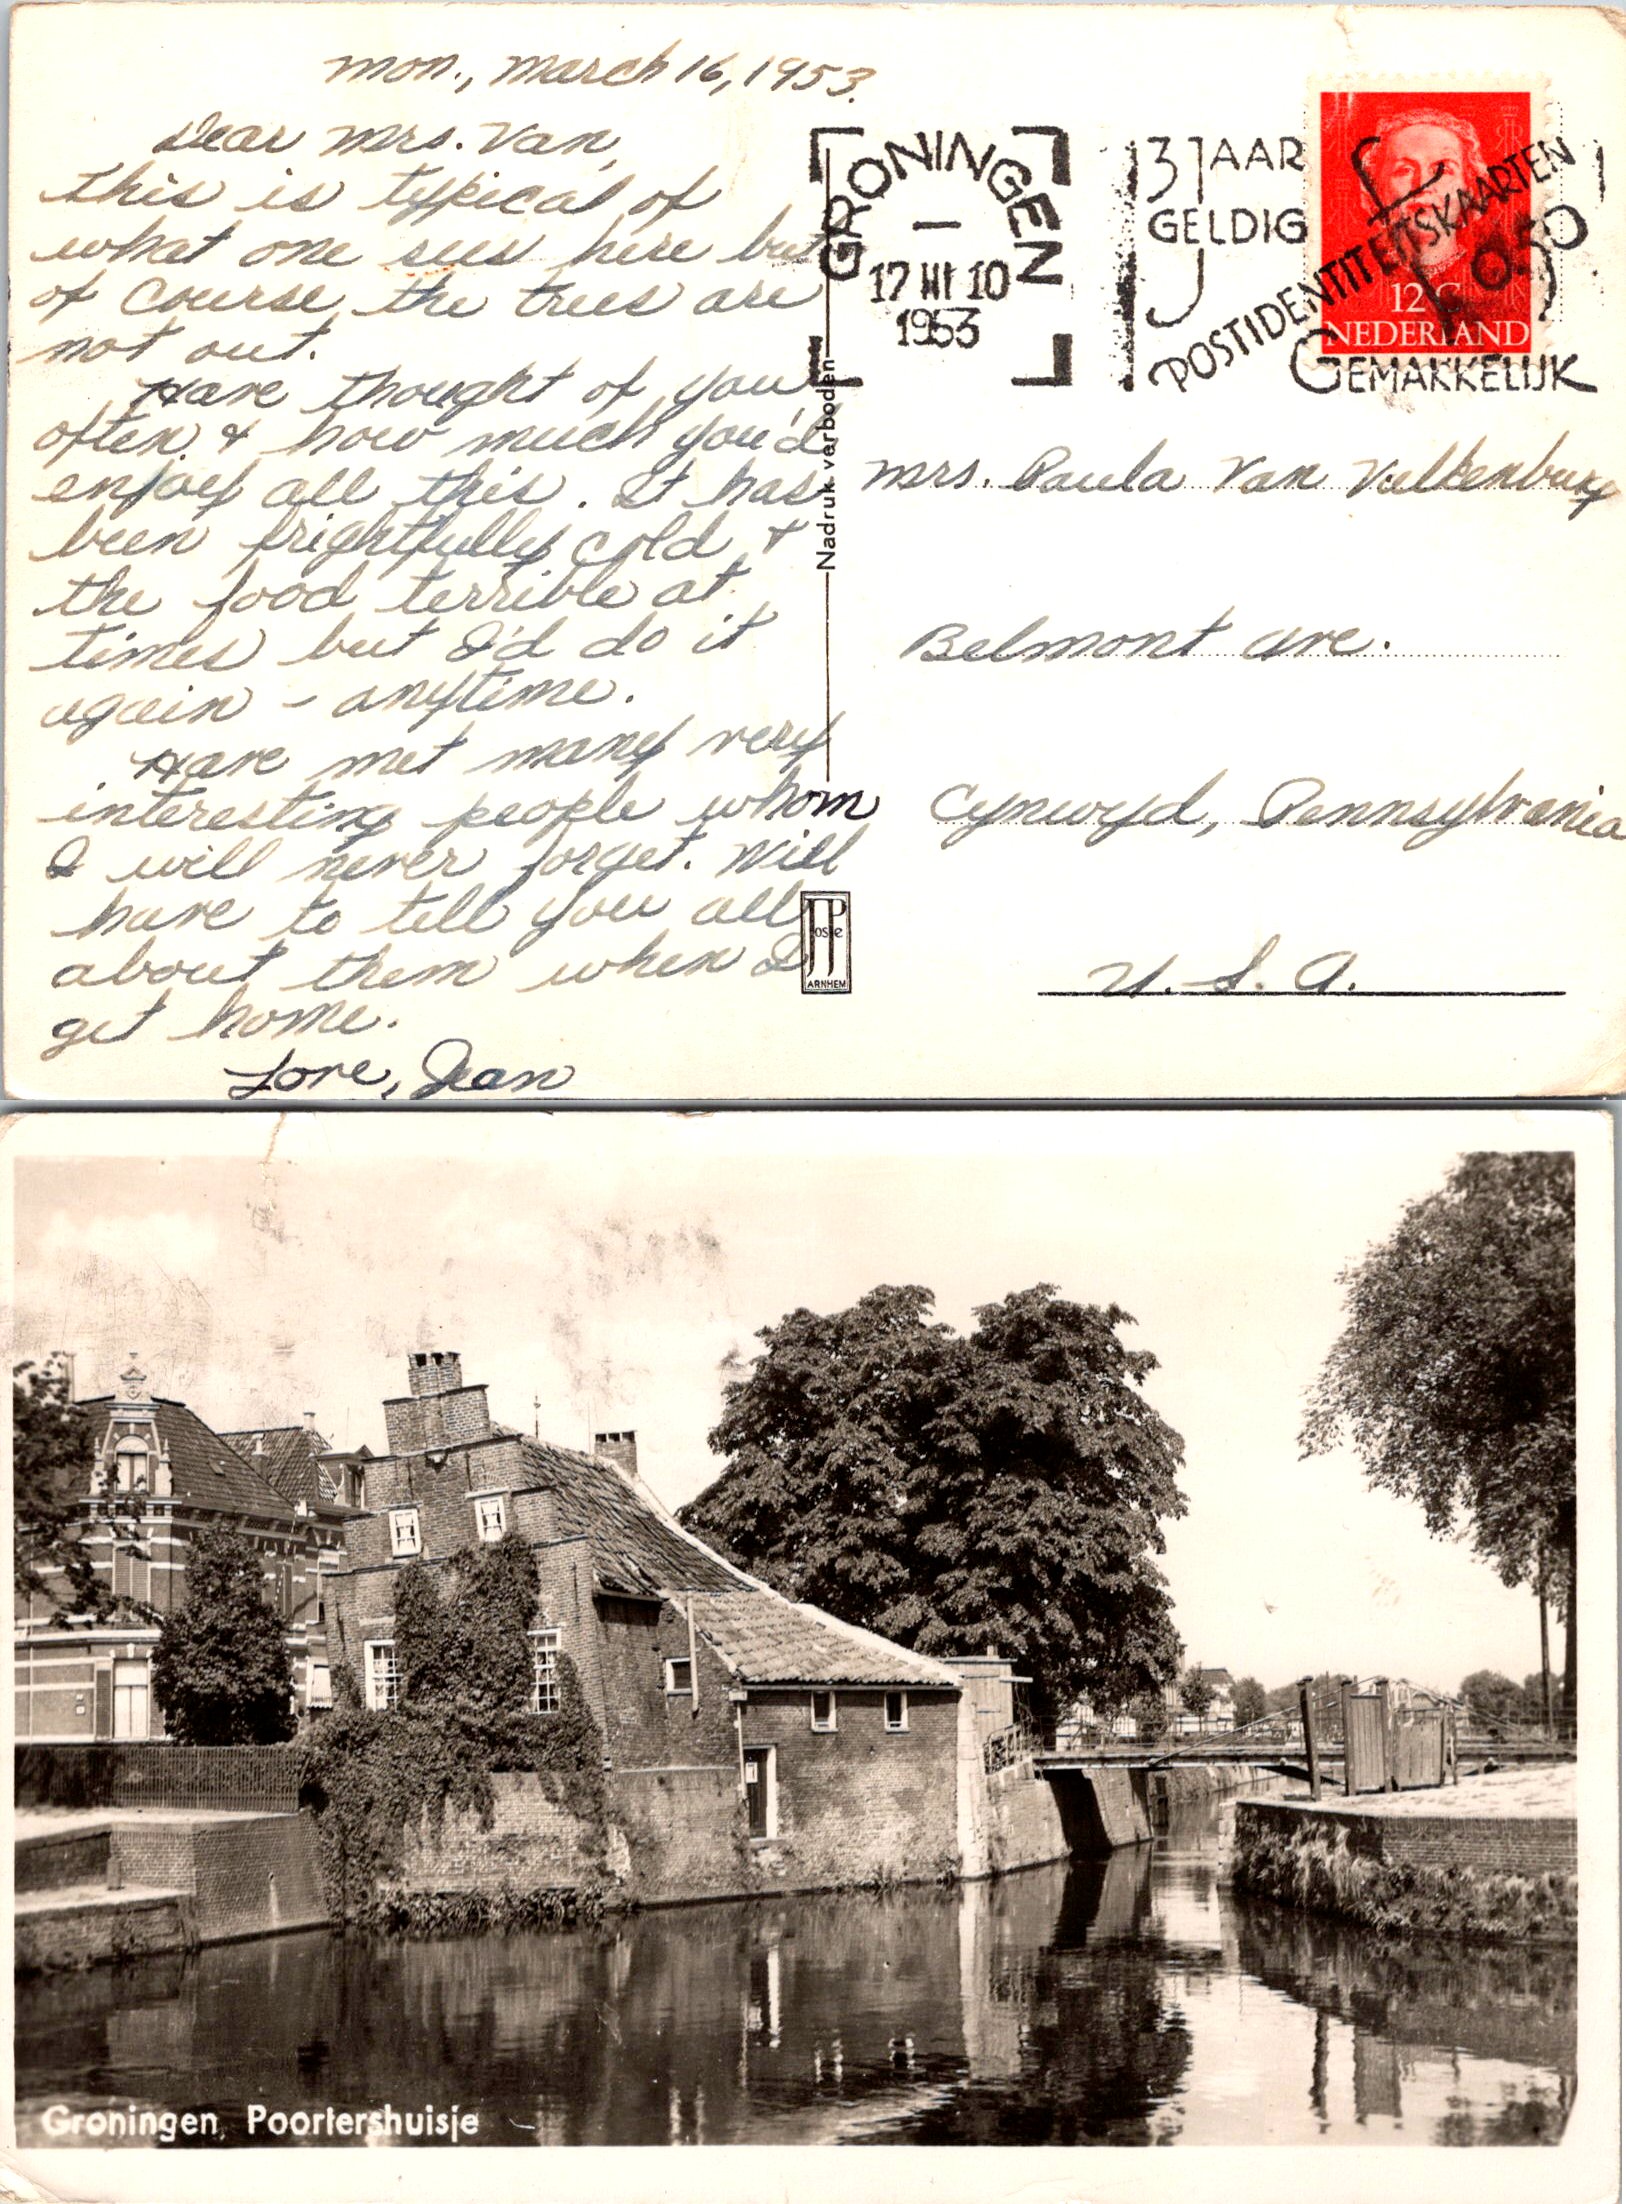 Mon., March 16, 1953.
Dear Mrs. Van,
This is typical of
what one sees here but
of course the trees are
not out.
Have thought of you
often & how much you'd
enjoy all this. It has
been frightfully cold &
the food terrible at
times but I'd do it
again - anytime.
Have met many very
interesting people whom
I will never forget. Will
have to tell you all
about them when I
get home.
Love, Jean
GRONINGEN
17 III 10
1953
3 JAAR
GELDIG
f 0.50
POSTIDENTITEITSKAARTEN
GEMAKKELIJK
12 C
NEDERLAND
Nadruk verboden
Mrs. Paula Van Valkenburg
Belmont Ave.
Cynwyd, Pennsylvania
U. S. A.
JosPe
ARNHEM
Groningen, Poortershuisje